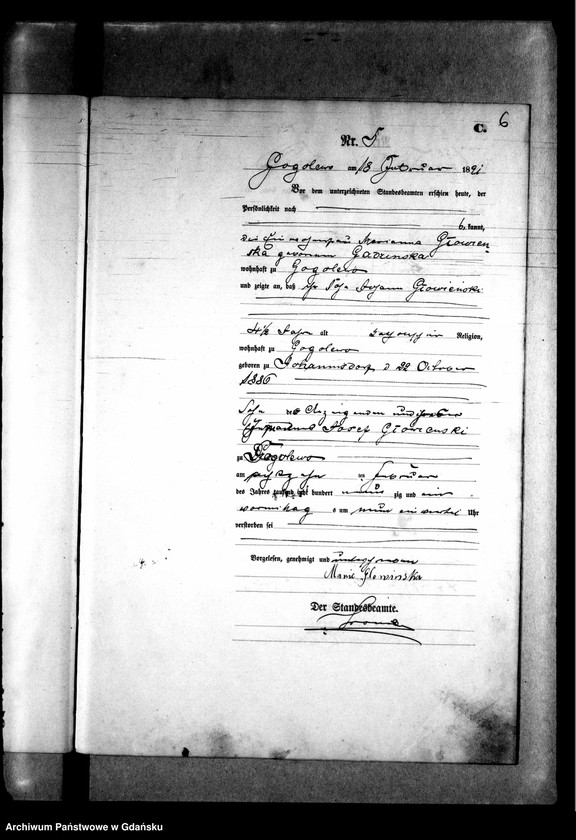 6
C.
Nr. 5
Gogolewo am 18 Februar 1891
Vor dem unterzeichneten Standesbeamten erschien heute, der
Persönlichkeit nach
kannt,
die Marianna Głowien
ska geborene
wohnhaft zu Gogolewo
und zeigte an, daß ihr Sohn Johann Głowieński
4 1/2 Jahr alt katholischer Religion,
wohnhaft zu Gogolewo
geboren zu Johannisdorf d 22 October
1886
Sohn der Anzeigenden und ihres
Josef Głowienski
zu Gogolewo
am ten Februar
des Jahres tausend acht hundert neun zig und ein
vormittag s um neun ein viertel Uhr
verstorben sei
Vorgelesen, genehmigt und unterschrieben
Marie Glowinska
Der Standesbeamte.
Archiwum Państwowe w Gdańsku